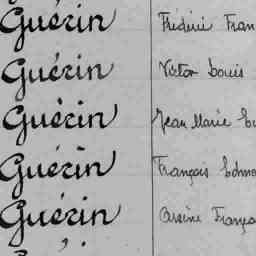 Guérin Frédéric Fran
Guérin Victor Louis
Guérin Jean Marie
Guérin François Edmo
Guérin Arsène França